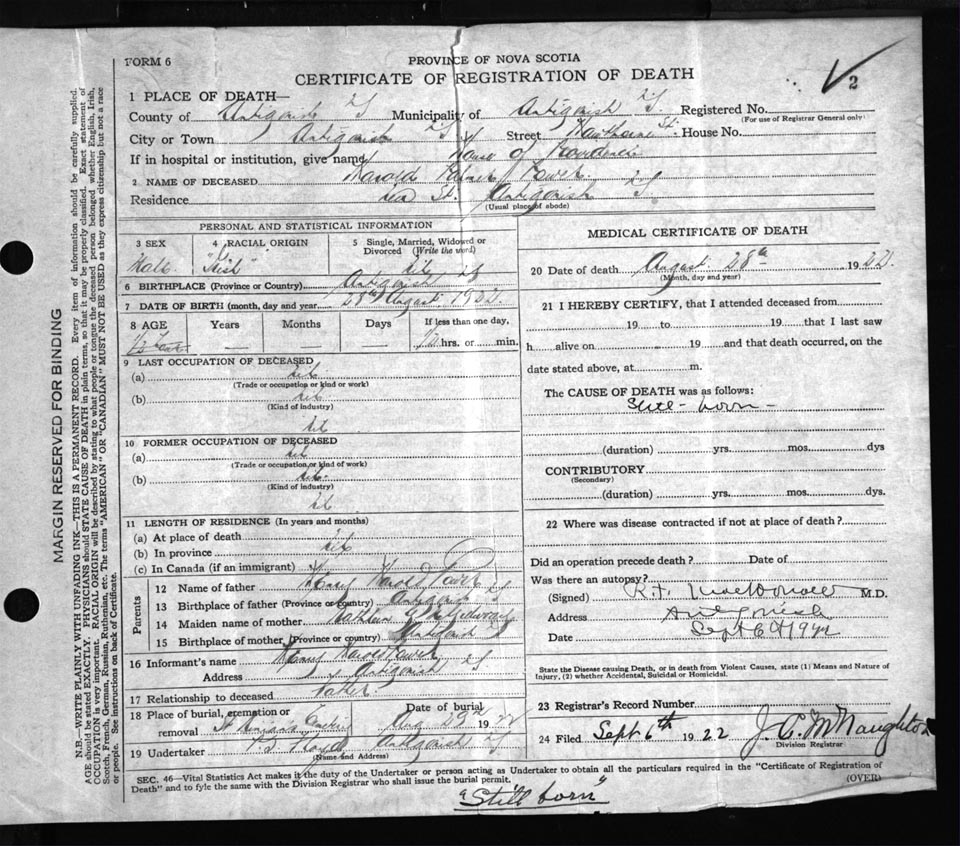 FORM 6
PROVINCE OF NOVA SCOTIA
CERTIFICATE OF REGISTRATION OF DEATH
2
1 PLACE OF DEATH—
County of Antigonish Municipality of Antigonish Registered No.
(For use of Registrar General only)
City or Town Antigonish Street Hawthorne St. House No.
If in hospital or institution, give name House of Providence
2 NAME OF DECEASED Harold Power
Residence St. Antigonish
(Usual place of abode)
PERSONAL AND STATISTICAL INFORMATION
3 SEX
Male
4 RACIAL ORIGIN
"Irish"
5 Single, Married, Widowed or
Divorced (Write the word)
6 BIRTHPLACE (Province or Country) Antigonish
7 DATE OF BIRTH (month, day and year) 28th August 1922.
8 AGE Years Months Days If less than one day,
— — — hrs. or min.
9 LAST OCCUPATION OF DECEASED
(a)
(Trade or occupation or kind or work)
(b)
(Kind of industry)
10 FORMER OCCUPATION OF DECEASED
(a)
(Trade or occupation or kind of work)
(b)
(Kind of industry)
11 LENGTH OF RESIDENCE (In years and months)
(a) At place of death
(b) In province
(c) In Canada (if an immigrant)
Parents
12 Name of father Harold Power
13 Birthplace of father (Province or country) Antigonish
14 Maiden name of mother Kathleen
15 Birthplace of mother (Province or country) Antigonish
16 Informant's name Harold Power
Address Antigonish
17 Relationship to deceased Father
18 Place of burial, cremation or removal Date of burial
St Ninian's Cemetery Aug 29th 1922
19 Undertaker Antigonish
(Name and Address)
MEDICAL CERTIFICATE OF DEATH
20 Date of death August 28th 1922.
(Month, day and year)
21 I HEREBY CERTIFY, that I attended deceased from
19 to 19 that I last saw
h alive on 19 and that death occurred, on the
date stated above, at m.
The CAUSE OF DEATH was as follows:
Still-born-
(duration) yrs. mos. dys
CONTRIBUTORY
(Secondary)
(duration) yrs. mos. dys.
22 Where was disease contracted if not at place of death?
Did an operation precede death? Date of
Was there an autopsy?
(Signed) R.F. MacDonald M.D.
Address Antigonish
Date Sept 6th 1922
State the Disease causing Death, or in death from Violent Causes, state (1) Means and Nature of
Injury, (2) whether Accidental, Suicidal or Homicidal.
23 Registrar's Record Number
24 Filed Sept 6th 1922 J. C. McNaughton
Division Registrar
SEC. 46—Vital Statistics Act makes it the duty of the Undertaker or person acting as Undertaker to obtain all the particulars required in the "Certificate of Registration of
Death" and to fyle the same with the Division Registrar who shall issue the burial permit. (OVER)
"Still born"
MARGIN RESERVED FOR BINDING
N.B.—WRITE PLAINLY WITH UNFADING INK—THIS IS A PERMANENT RECORD. Every item of information should be carefully supplied.
AGE should be stated EXACTLY. PHYSICIANS should STATE CAUSE OF DEATH in plain terms, so that it may be properly classified. Exact statement of
OCCUPATION is very important. RACIAL ORIGIN will be described by stating to what people or tongue the deceased person belonged whether English, Irish,
Scotch, French, German, Russian, Ruthenian, etc. The terms "AMERICAN" OR "CANADIAN" MUST NOT BE USED as they express citizenship but not a race
or people. See instructions on back of Certificate.